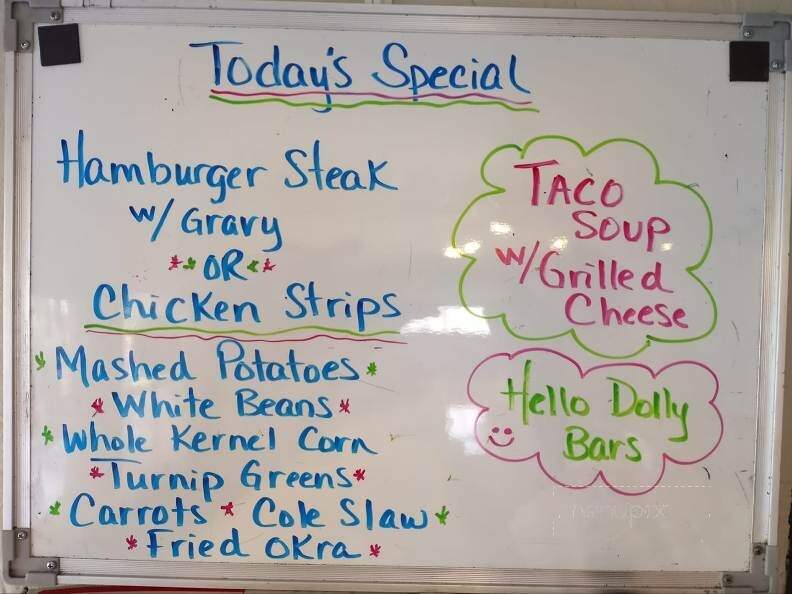 Today's Special
Hamburger Steak
w/ Gravy
** OR **
Chicken Strips
*Mashed Potatoes*
*White Beans*
*Whole Kernel Corn
*Turnip Greens*
*Carrots * Cole Slaw*
*Fried OKra*
TACO
SOUP
w/Grilled
Cheese
Hello Dolly
Bars